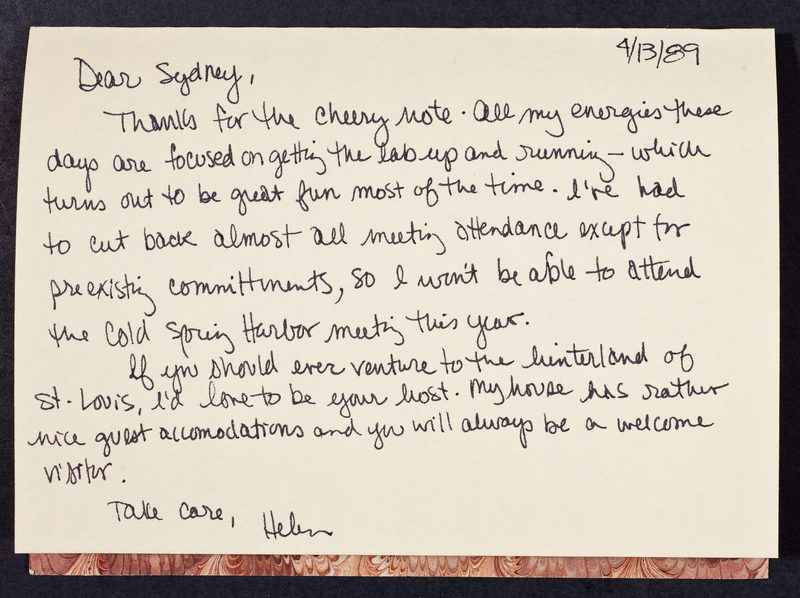 4/13/89
Dear Sydney,
Thanks for the cheery note. All my energies these
days are focused on getting the lab up and running – which
turns out to be great fun most of the time. I've had
to cut back almost all meeting attendance except for
preexisting committments, so I won't be able to attend
the Cold Spring Harbor meeting this year.
If you should ever venture to the hinterland of
St. Louis, I'd love to be your host. My house has rather
nice guest accomodations and you will always be a welcome
visitor.
Take care,
Helen